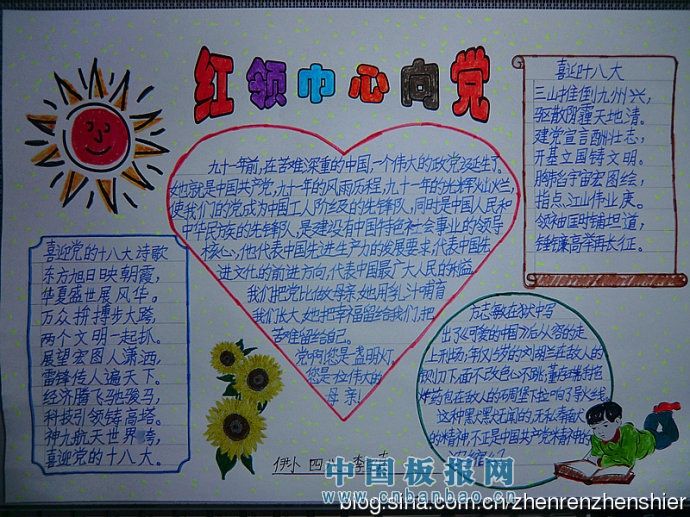 红领巾心向党
喜迎十八大
三山推倒九州兴,
驱散阴霾天地清。
建党宣言酬壮志,
开基立国铸文明。
胸怀宇宙宏图绘,
指点江山伟业
领袖匡时铺坦道,
高举再长征。
九十一年前,在苦难深重的中国,一个伟大的政党诞生了。
她就是中国共产党,九十一年的风雨历程,九十一年的光辉灿烂,
使我们的党成为中国工人阶级的先锋队,同时是中国人民和
中华民族的先锋队,是建设有中国特色社会事业的领导
核心,他代表中国先进生产力的发展要求,代表中国先
进文化的前进方向,代表中国最广大人民的利益。
我们把党比做母亲,她用乳汁哺育
我们长大,她把幸福留给我们,把
苦难留给自己。
党啊!您是一盏明灯,
您是一位伟大的
母亲!
喜迎党的十八大诗歌
东方旭日映朝霞,
华夏盛世展风华。
万众拼搏步大跨,
两个文明一起抓。
展望宏图人潇洒,
雷锋传人遍天下。
经济腾飞驰骏马,
科技引领铸高塔。
神九航天世界夸,
喜迎党的十八大。
方志敏在狱中写
出了《可爱的中国》后从容的走
上刑场;年仅15岁的刘胡兰在敌人的
铡刀下,面不改色心不跳;董存瑞抱
炸药包在敌人的碉堡下拉响了导火线。
这种默默无闻的,无私奉献
的精神,不正是中国共产党精神的
四
中国板报网
www.cnbanbao.cn
blog.sina.com.cn/zhenrenzhenshier